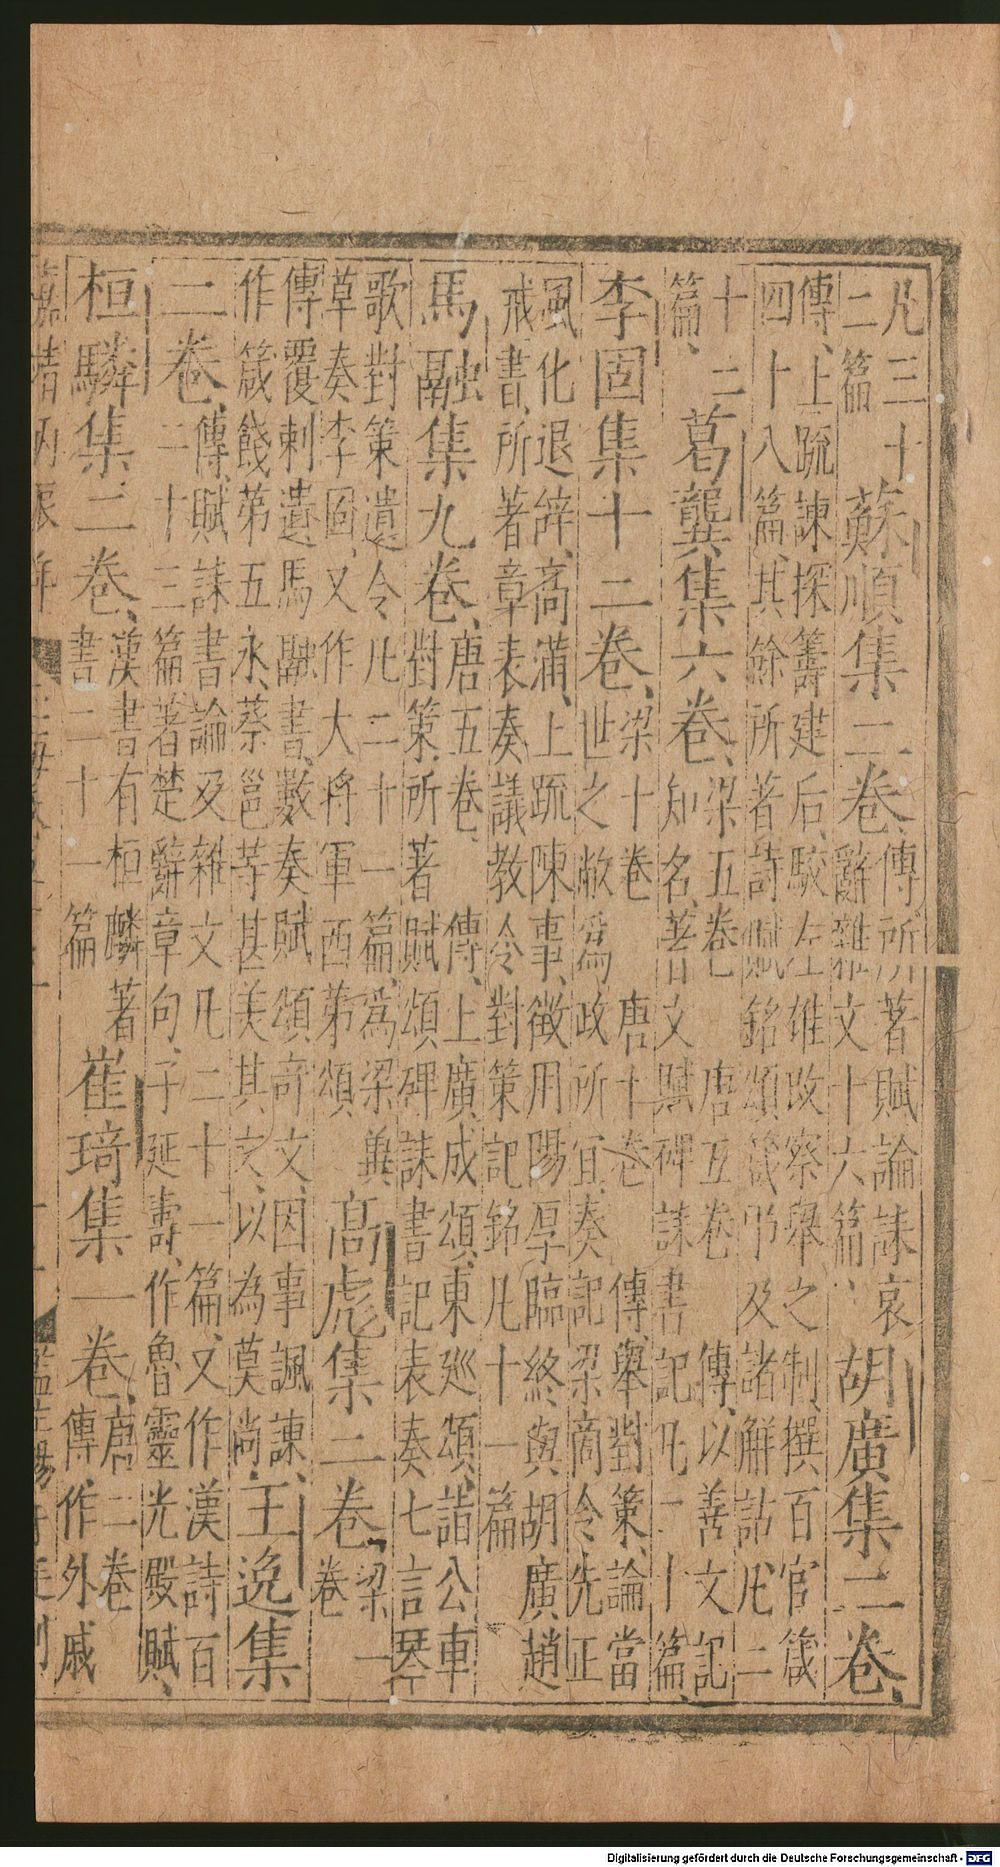 凡三十
二篇
蘇順集二卷、
傳所著賦論誄哀
辭雜文十六篇、
胡廣集二卷、
傳、上疏諫探籌建后、駮左雄改察舉之制、撰百官箴
四十八篇、其餘所著詩賦銘頌箴弔及諸解詁凡二
十二
篇、
葛龔集六卷、
梁五卷 唐五卷 傳、以善文記
知名、著文賦碑誄書記凡二十篇、
李固集十二卷、
梁十卷 唐十卷 傳、舉對策、論當
世之敝為政所宜、奏記梁商令先正
風化退辭高滿、上疏陳事、徵用陽厚臨終與胡廣趙
戒書、所著章表奏議教令對策記銘凡十一篇
馬融集九卷、
唐五卷、 傳、上廣成頌、東廵頌、詣公車
對策、所著賦頌碑誄書記表奏七言琴
歌對策遺令凡二十一篇、為梁冀
草奏李固、又作大將軍西第頌、
高彪集二卷、
梁一
卷
傳覆刺遺馬融書、數奏賦頌奇文、因事諷諫、
作箴餞第五永、蔡邕等甚美其文、以為莫尚、
王逸集
二卷、
傳、賦誄書論及雜文凡二十一篇、又作漢詩百
二十三篇著楚辭章句、子延壽、作魯靈光殿賦、
桓驎集二卷、
漢書有桓麟著
書二十一篇
崔琦集一卷、
唐二卷
傳作外戚